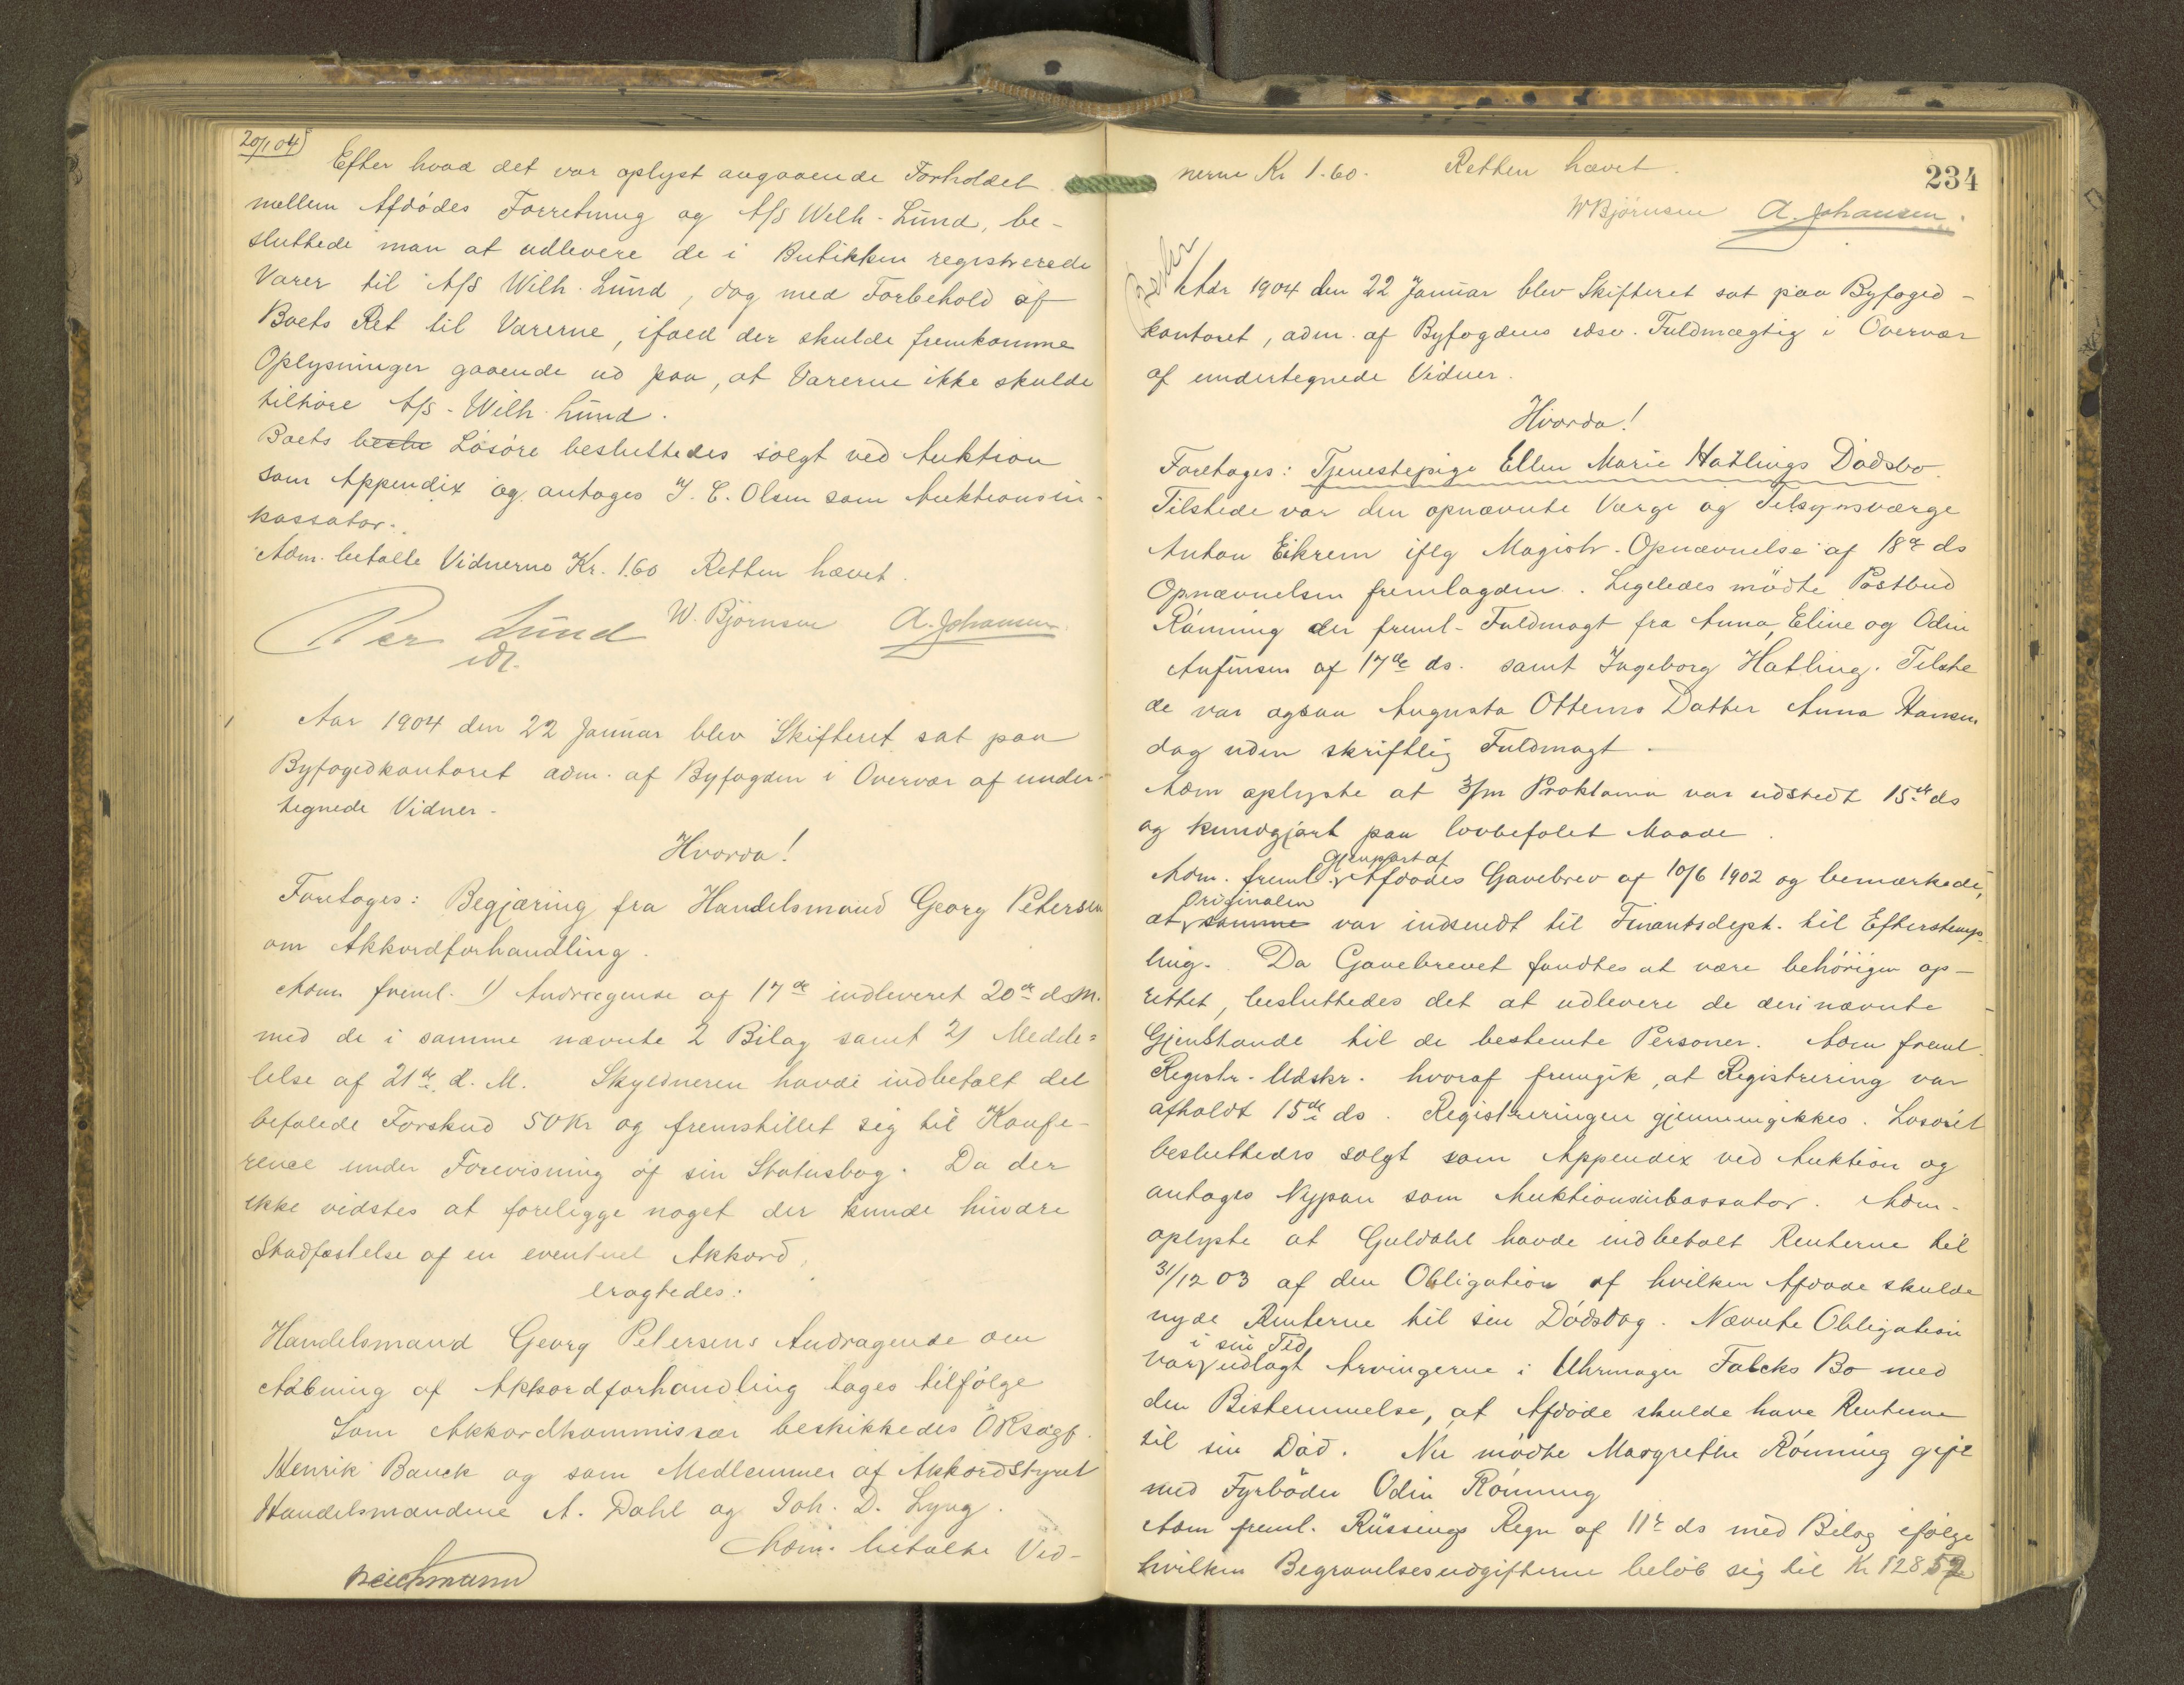 20/1 04
Efter hvad det var oplyst angaaende Forholdet
mellem Afdødes Forretning og A/S Wilh. Lund, be-
sluttede man at udlevere de i Butikken registrerede
Varer til A/S Wilh. Lund, dog med Forbehold af
Boets Ret til Varerne, ifald der skulde fremkomme
Oplysninger gaaende ud paa, at Varerne ikke skulde
tilhøre A/S. Wilh. Lund.
Boets Løsøre besluttedes solgt ved Auktion
som Appendix og antoges J. C. Olsen som Auktionsin-
kassator.
Adm. betalte Vidnerne Kr. 1.60 Retten hævet.
Per Lund W. Bjørnsen A. Johansen
Aar 1904 den 22 Januar blev Skifteret sat paa
Byfogedkontoret adm. af Byfogden i Overvær af under-
tegnede Vidner.
Hvorda!
Foretoges: Begjæring fra Handelsmand Georg Petersen
om Akkordforhandling.
Adm. freml. 1) Andragende af 17de indleveret 20de ds M.
med de i samme nævnte 2 Bilag samt 2) Medde=
lelse af 21de d. M. Skyldneren havde indbetalt det
befalede Forskud 50 Kr og fremstillet sig til Konfe-
rence under Forevisning af sin Statusbog. Da der
ikke vidstes at foreligge noget der kunde hindre
Stadfæstelse af en eventuel Akkord,
eragtedes:
Handelsmand Georg Petersens Andragende om
Aabning af Akkordforhandling tages tilfølge
Som Akkordkommissær beskikkedes ORsagf.
Henrik Bauck og som Medlemmer af Akkordstyret
Handelsmændene A. Dahl og Joh. D. Lyng.
Adm. betalte Vid-
Beichmann
nerne Kr 1.60. Retten hævet.
234
W Bjørnsen A. Johansen.
Aar 1904 den 22 Januar blev Skifteret sat paa Byfoged-
kontoret, adm. af Byfogdens edsv. Fuldmægtig i Overvær
af undertegnede Vidner.
Hvorda!
Foretoges: Tjenestepige Ellen Marie Hatlings Dødsbo.
Tilstede var den opnævnte Værge og Tilsynsværge
Anton Eikrem iflg Magistr. Opnævnelse af 18de ds
Opnævnelsen fremlagdes. Ligeledes mødte Postbud
Rønning der freml. Fuldmagt fra Anna, Eline og Odin
Anfinsen af 17de ds. samt Ingeborg Hatling. Tilste
de var ogsaa Augusta Ottems Datter Anna Hansen
dog uden skriftlig Fuldmagt.
Adm oplyste at 3/m Proklama var udstedt 15de ds
og kundgjort paa lovbefalet Maade.
Adm. freml. Gjenpart af Afdødes Gavebrev af 10/6 1902 og bemærkede,
at samme Originalen var indsendt til Finantsdept. til Efterstemp-
ling. Da Gavebrevet fandtes at være behørigen op-
rettet, besluttedes det at udlevere de deri nævnte
Gjenstande til de bestemte Personer. Adm freml.
Registr. Udskr. hvoraf fremgik, at Registrering var
afholdt 15de ds. Registreringen gjennemgikkes. Løsøret
besluttedes solgt som Appendix ved Auktion og
antoges Nypan som Auktionsinkassator. Adm.
oplyste at Guldahl havde indbetalt Renterne til
31/12 03 af den Obligation af hvilken Afdøde skulde
nyde Renterne til sin Dødsdag. Nævnte Obligation
var i sin Tid udlagt Arvingerne i Uhrmager Falcks Bo med
den Bestemmelse, at Afdøde skulde have Renterne
til sin Død. Nu mødte Margrethe Rønning gift
med Fyrbøder Odin Rønning
Adm freml. Rüssings Regn af 11te ds med Bilag ifølge
hvilken Begravelsesudgifterne beløb sig til Kr 128,52